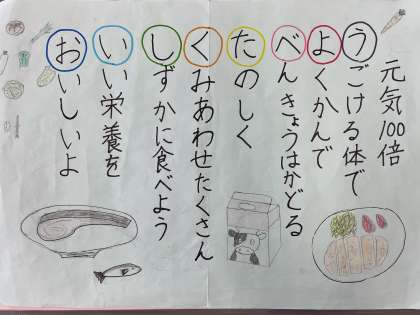 元気100倍
うごける体で
よくかんで
べんきょうはかどる
たのしく
くみあわせたくさん
しずかに食べよう
いい栄養を
おいしいよ